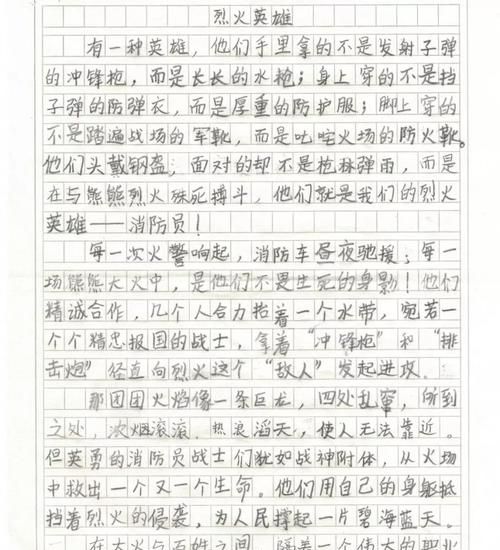 烈火英雄
有一种英雄，他们手里拿的不是发射子弹
的冲锋枪，而是长长的水枪；身上穿的不是挡
子弹的防弹衣，而是厚重的防护服；脚上穿的
不是踏遍战场的军靴，而是叱咤火场的防火靴。
他们头戴钢盔，面对的却不是枪林弹雨，而是
在与熊熊烈火殊死搏斗，他们就是我们的烈火
英雄——消防员！
每一次火警响起，消防车昼夜驰援；每一
场熊熊大火中，是他们不畏生死的身影！他们
精诚合作，几个人合力抬着一个水带，宛若一
个个精忠报国的战士，拿着“冲锋枪”和“排
击炮”径直向烈火这个“敌人”发起进攻。
那团团火焰像一条巨龙，四处乱窜，所到
之处，浓烟滚滚，热浪滔天，使人无法靠近。
但英勇的消防员战士们犹如战神附体，从火场
中救出一个又一个生命。他们用自己的身躯抵
挡着烈火的侵袭，为人民撑起一片碧海蓝天。
在大火与百姓之间，隔着一个伟大的职业